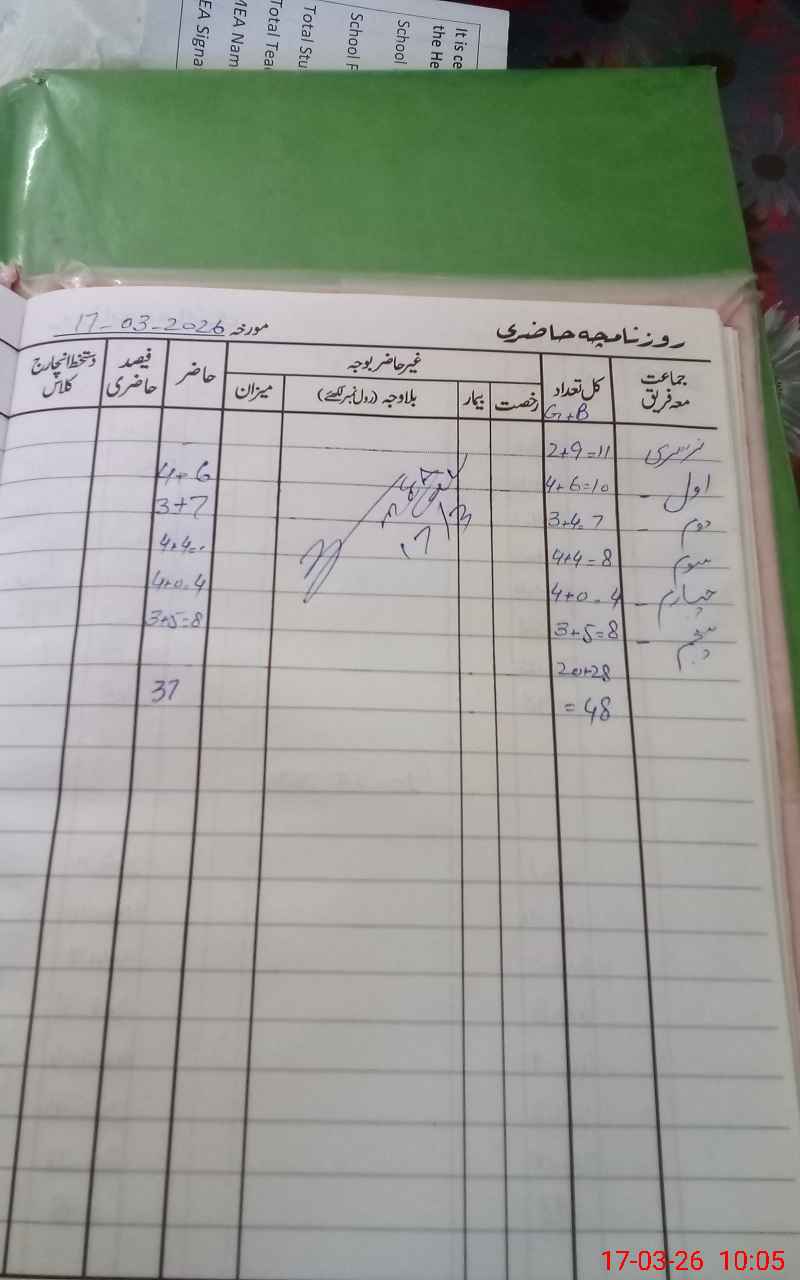 It is ce
the He
School
School F
Total Stu
Total Tea
MEA Nam
EA Signa
روزنامچہ حاضری
مورخہ 17-03-2026
جماعت معہ فریق
کل تعداد
G+B
غیر حاضر بوجہ
رخصت
بیمار
بلاوجہ (رول نمبر لکھئے)
میزان
حاضر
فیصد حاضری
دستخط انچارج کلاس
نرسری 2+9=11 -
اول - 4+6=10 4+6
دوم - 3+4=7 3+7
سوم 4+4=8 4+4=
چہارم - 4+0=4 4+0=4
پنجم - 3+5=8 3+5=8
20+28
=48 37
17/3
17-03-26 10:05